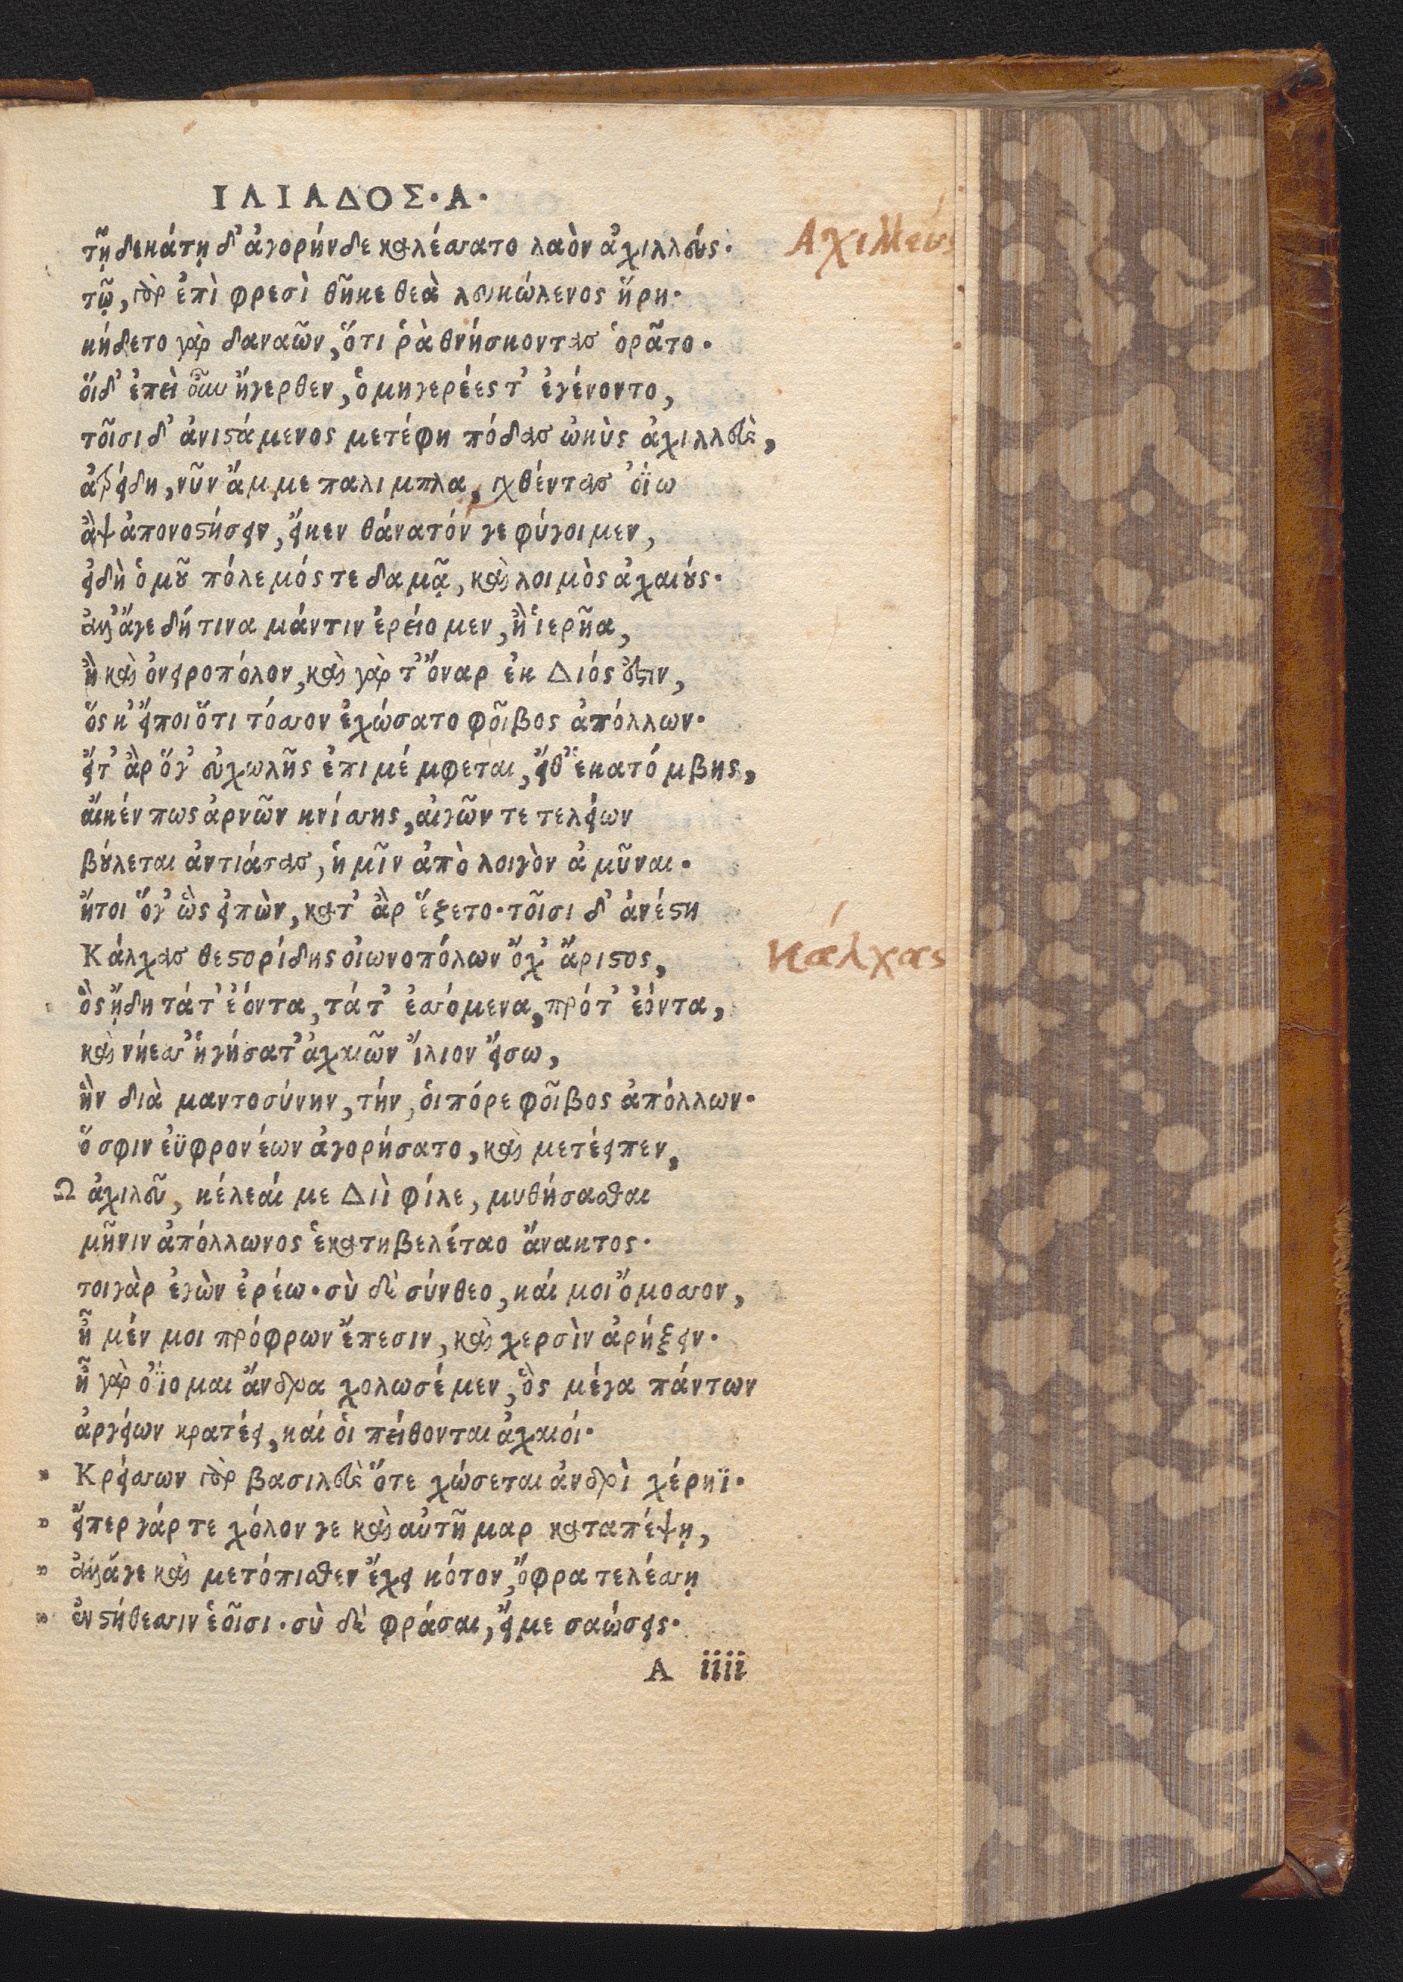 ΙΛΙΑΔΟΣ·Α·
τῇ δεκάτῃ δ' ἀγορήνδε καλέσσατο λαὸν ἀχιλλεύς· Αχιλλεύς
τῷ, γὰρ ἐπὶ φρεσὶ θῆκε θεὰ λευκώλενος ἥρη·
κήδετο γὰρ δαναῶν, ὅτι ῥὰ θνήσκοντας ὁρᾶτο·
ὅιδ' ἐπεὶ οὖν ἤγερθεν, ὁμηγερέες τ' ἐγένοντο,
τοῖσι δ' ἀνιστάμενος μετέφη πόδας ὠκὺς ἀχιλλεὺς,
ἀτρείδη, νῦν ἄμμε παλιμπλα, γχθέντας ὀΐω
ἂψ ἀπονοστήσειν, εἴκεν θάνατόν γε φύγοιμεν,
εἰδὴ ὁμοῦ πόλεμός τε δαμᾷ, καὶ λοιμὸς ἀχαιούς·
ἀλλ' ἄγε δή τινα μάντιν ἐρείομεν, ἢ ἱερῆα,
ἢ καὶ ὀνειροπόλον, καὶ γὰρ τ' ὄναρ ἐκ Διός ἐστιν,
ὅς κ' εἴποι ὅτι τόσσον ἐχώσατο φοῖβος ἀπόλλων·
εἴτ' ἂρ ὅγ' εὐχωλῆς ἐπιμέμφεται, εἴθ' ἑκατόμβης,
αἴκέν πως ἀρνῶν κνίσσης, αἰγῶν τε τελείων
βούλεται ἀντιάσας, ἡμῖν ἀπὸ λοιγὸν ἀμῦναι·
ἤτοι ὅγ' ὣς εἰπὼν, κατ' ἂρ ἕζετο· τοῖσι δ' ἀνέστη
Κάλχας θεστορίδης οἰωνοπόλων ὄχ' ἄριστος, Κάλχας
ὃς ᾔδη τά τ' ἐόντα, τά τ' ἐσσόμενα, πρό τ' ἐόντα,
καὶ νήεσσ' ἡγήσατ' ἀχαιῶν ἴλιον εἴσω,
ἣν διὰ μαντοσύνην, τήν, ὁι πόρε φοῖβος ἀπόλλων·
ὅ σφιν ἐϋφρονέων ἀγορήσατο, καὶ μετέειπεν,
Ω ἀχιλεῦ, κέλεαί με Διὶ φίλε, μυθήσασθαι
μῆνιν ἀπόλλωνος ἑκατηβελέταο ἄνακτος·
τοιγὰρ ἐγὼν ἐρέω· σὺ δὲ σύνθεο, καί μοι ὄμοσσον,
ἦ μέν μοι πρόφρων ἔπεσιν, καὶ χερσὶν ἀρήξειν·
ἦ γὰρ ὀΐομαι ἄνδρα χολωσέμεν, ὃς μέγα πάντων
ἀργείων κρατέει, καί ὁι πείθονται ἀχαιοί·
" Κρείσσων γὰρ βασιλεὺς ὅτε χώσεται ἀνδρὶ χέρηϊ·
" εἴπερ γάρ τε χόλον γε καὶ αὐτῆμαρ καταπέψῃ,
" ἀλλάγε καὶ μετόπισθεν ἔχει κότον, ὄφρα τελέσσῃ
" ἐν στήθεσσιν ἑοῖσι· σὺ δὲ φράσαι, εἴ με σαώσεις·
Α iiii